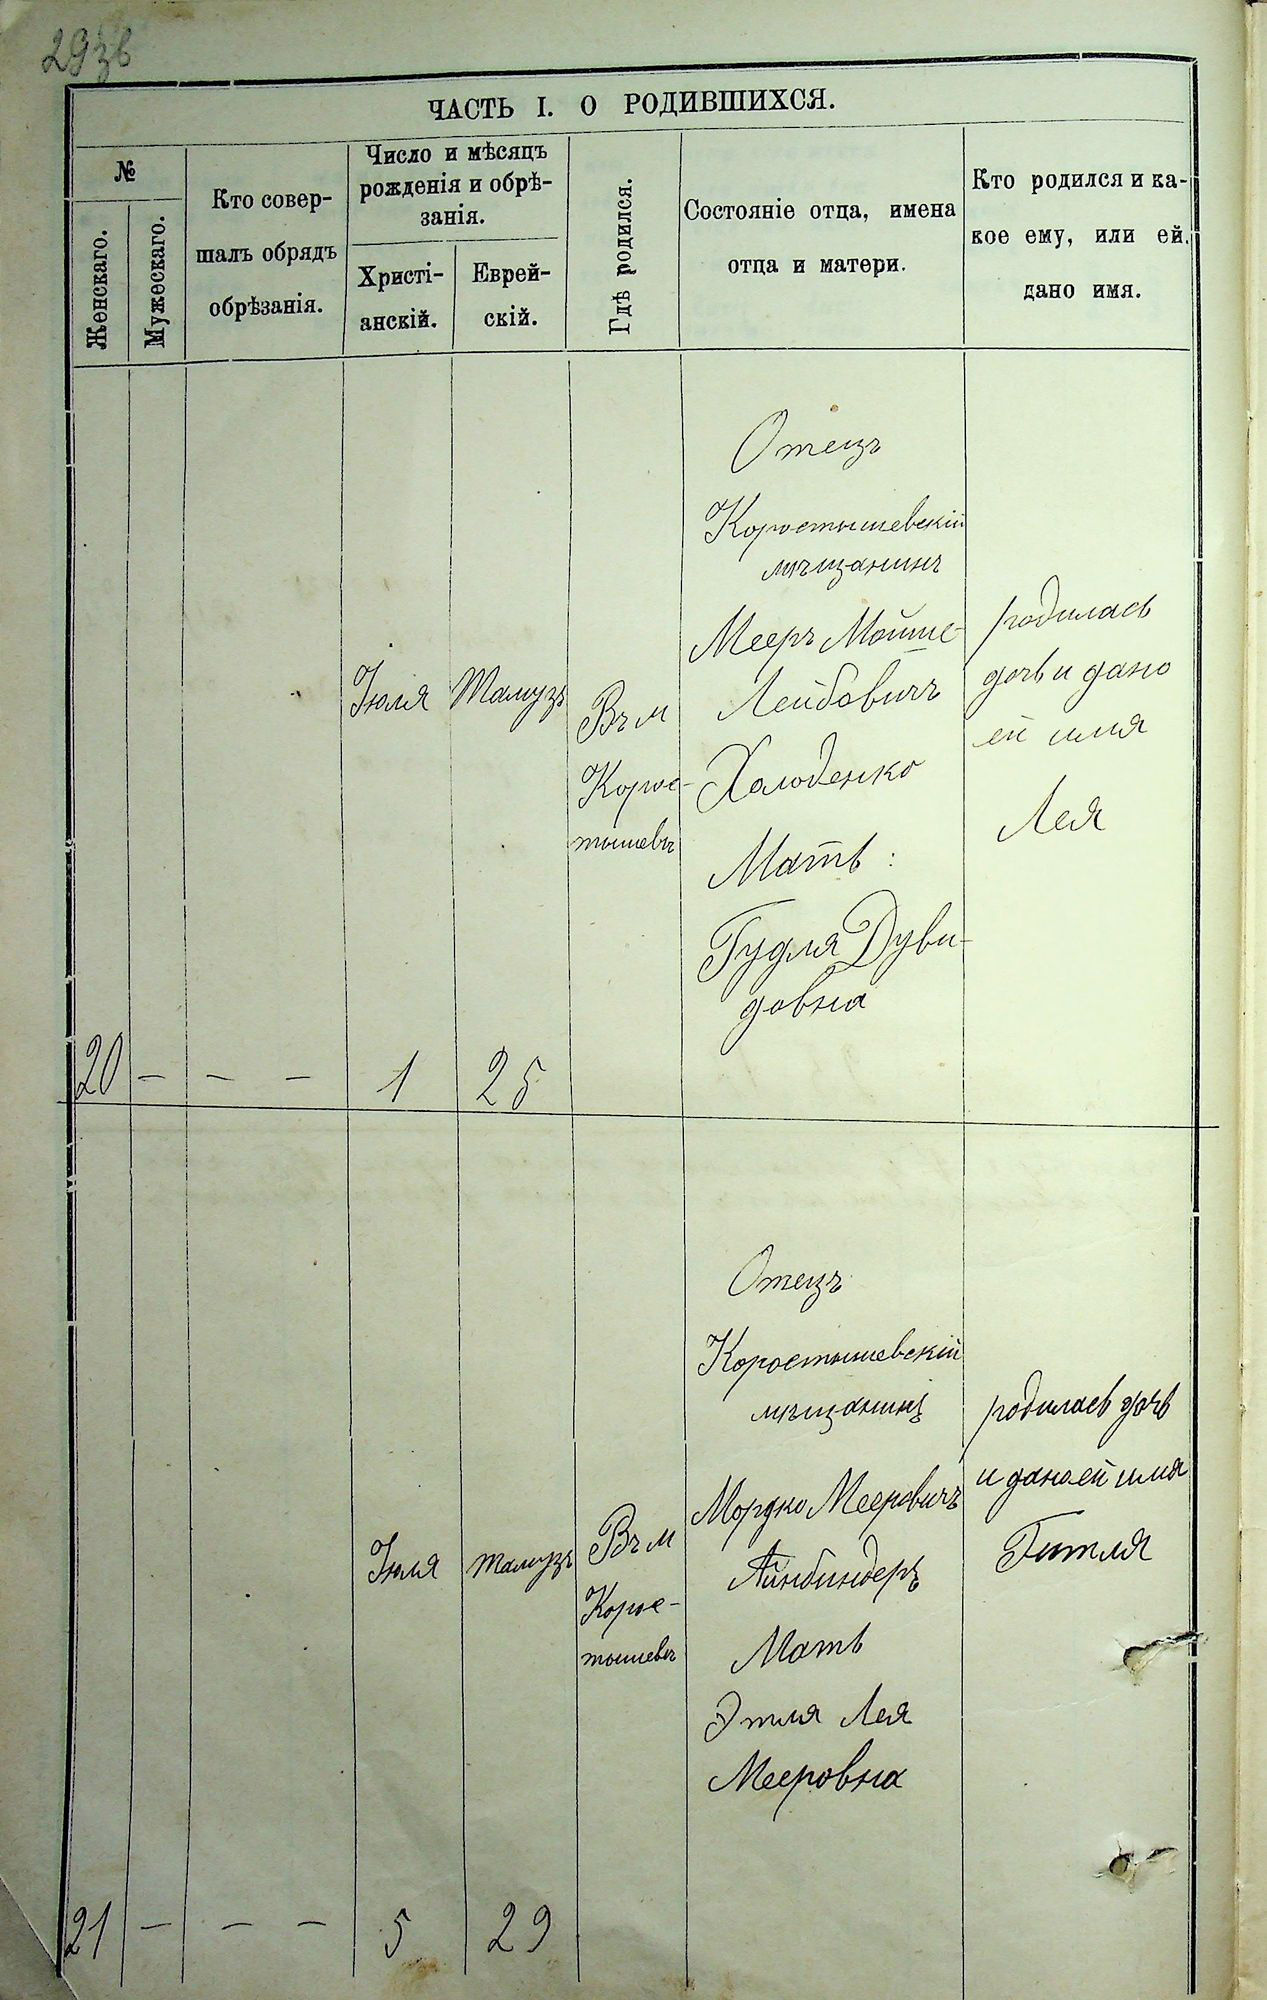 293б
ЧАСТЬ I. О РОДИВШИХСЯ.
№
Женскаго.
Мужескаго.
Кто совер-
шалъ обрядъ
обрѣзанія.
Число и мѣсяцъ
рожденія и обрѣ-
занія.
Христі-
анскій.
Еврей-
скій.
Гдѣ родился.
Состояніе отца, имена
отца и матери.
Кто родился и ка-
кое ему, или ей,
дано имя.
20
—
— —
Іюля
1
Тамузъ
25
Въ м
Корос-
тышевѣ
Отецъ
Коростышевскій
мѣщанинъ
Мееръ Мойше-
Лейбовичъ
Холоденко
Мать :
Гудля Дуви-
довна
родилась
дочь и дано
ей имя
Лея
21
—
— —
Іюля
5
тамузъ
29
Въ м
Корос-
тышевѣ
Отецъ
Коростышевскій
мѣщанинъ
Мордко Мееровичъ
Айнбиндеръ
Мать
Этля Лея
Мееровна
родилась дочь
и дано ей имя
Гитля